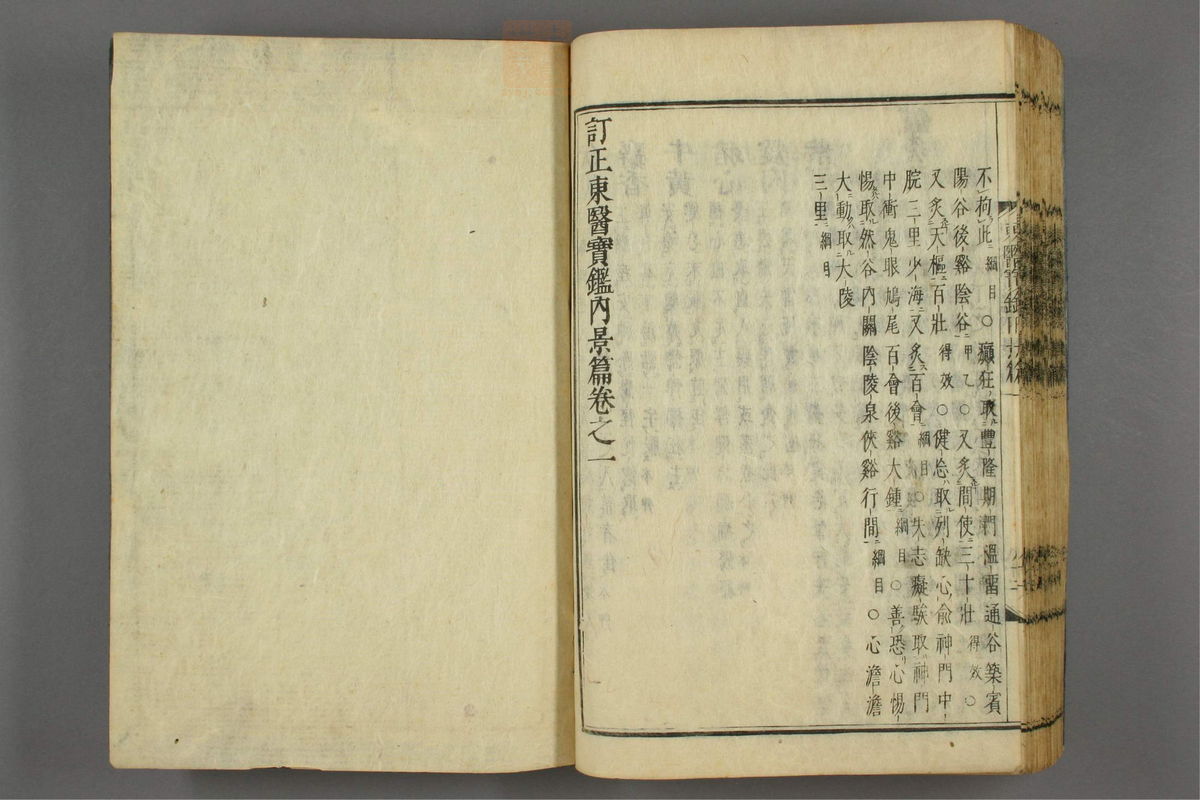 不拘此綱目○癲狂取豐隆期門溫畱通谷築賓
陽谷後谿陰谷甲乙○又炙間使三十壯得效○
又炙天樞百壯得效○健忘取列缺心俞神門中
脘三里少海又炙百會綱目○失志癡騃取神門
中衝鬼眼鳩尾百會後谿大鍾綱目○善恐心惕
惕取然谷內關陰陵泉俠谿行間綱目○心澹澹
大動取大陵
三里綱目
訂正東醫寶鑑內景篇卷之一